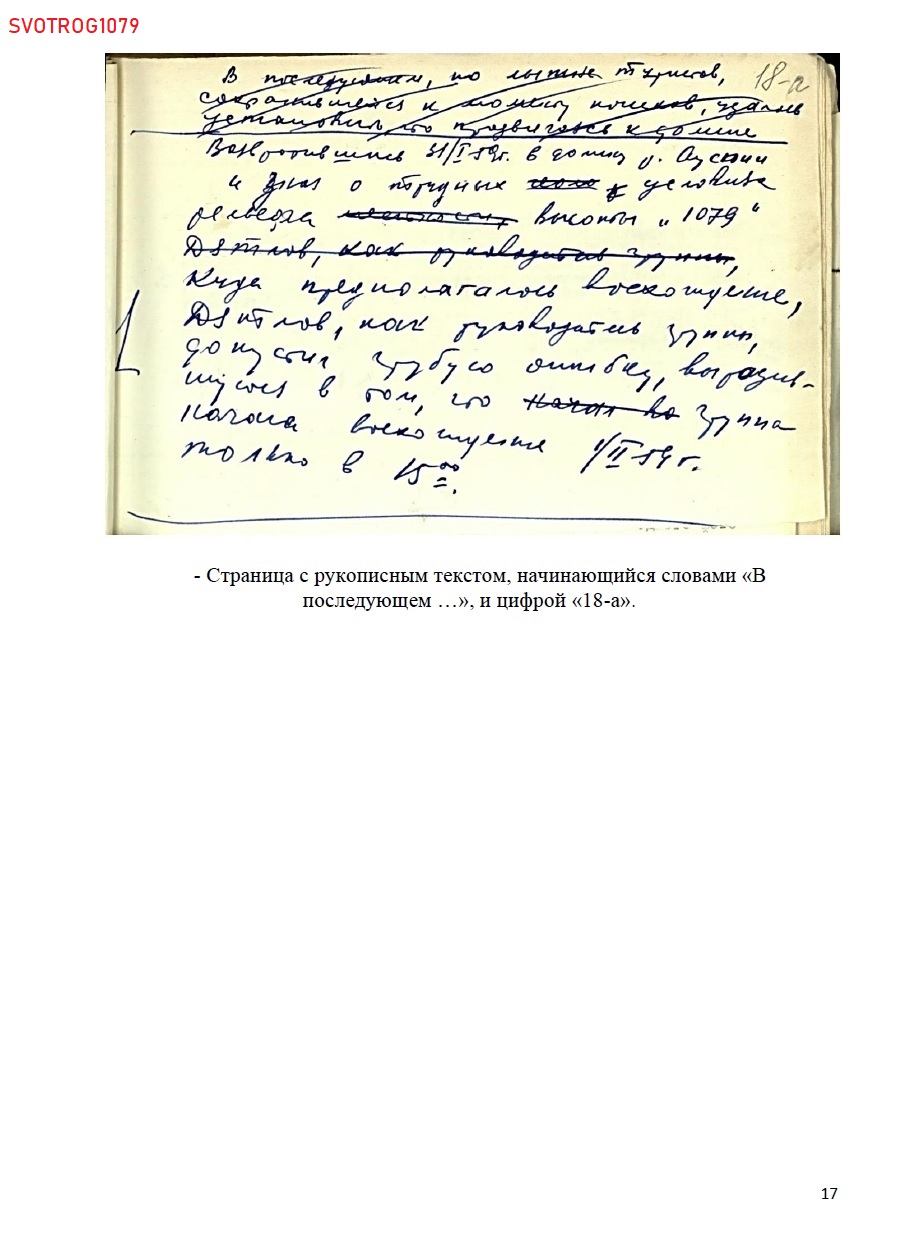 SVOTROG1079
18-а
В последующем, по лыжне туристов,
сохранившейся к моменту поисков, удалось
установить, что продвигаясь к долине
Возвратившись 31/I 59г. в долину р. Ауспии
и зная о трудных условиях
рельефа высоты „1079"
Дятлов, как руководитель группы,
куда предполагалось восхождение,
Дятлов, как руководитель группы,
допустил грубую ошибку, выразив-
шуюся в том, что начал во группа
начала восхождение 1/II 59 г.
только в 15⁰⁰.
- Страница с рукописным текстом, начинающийся словами «В
последующем …», и цифрой «18-а».
17